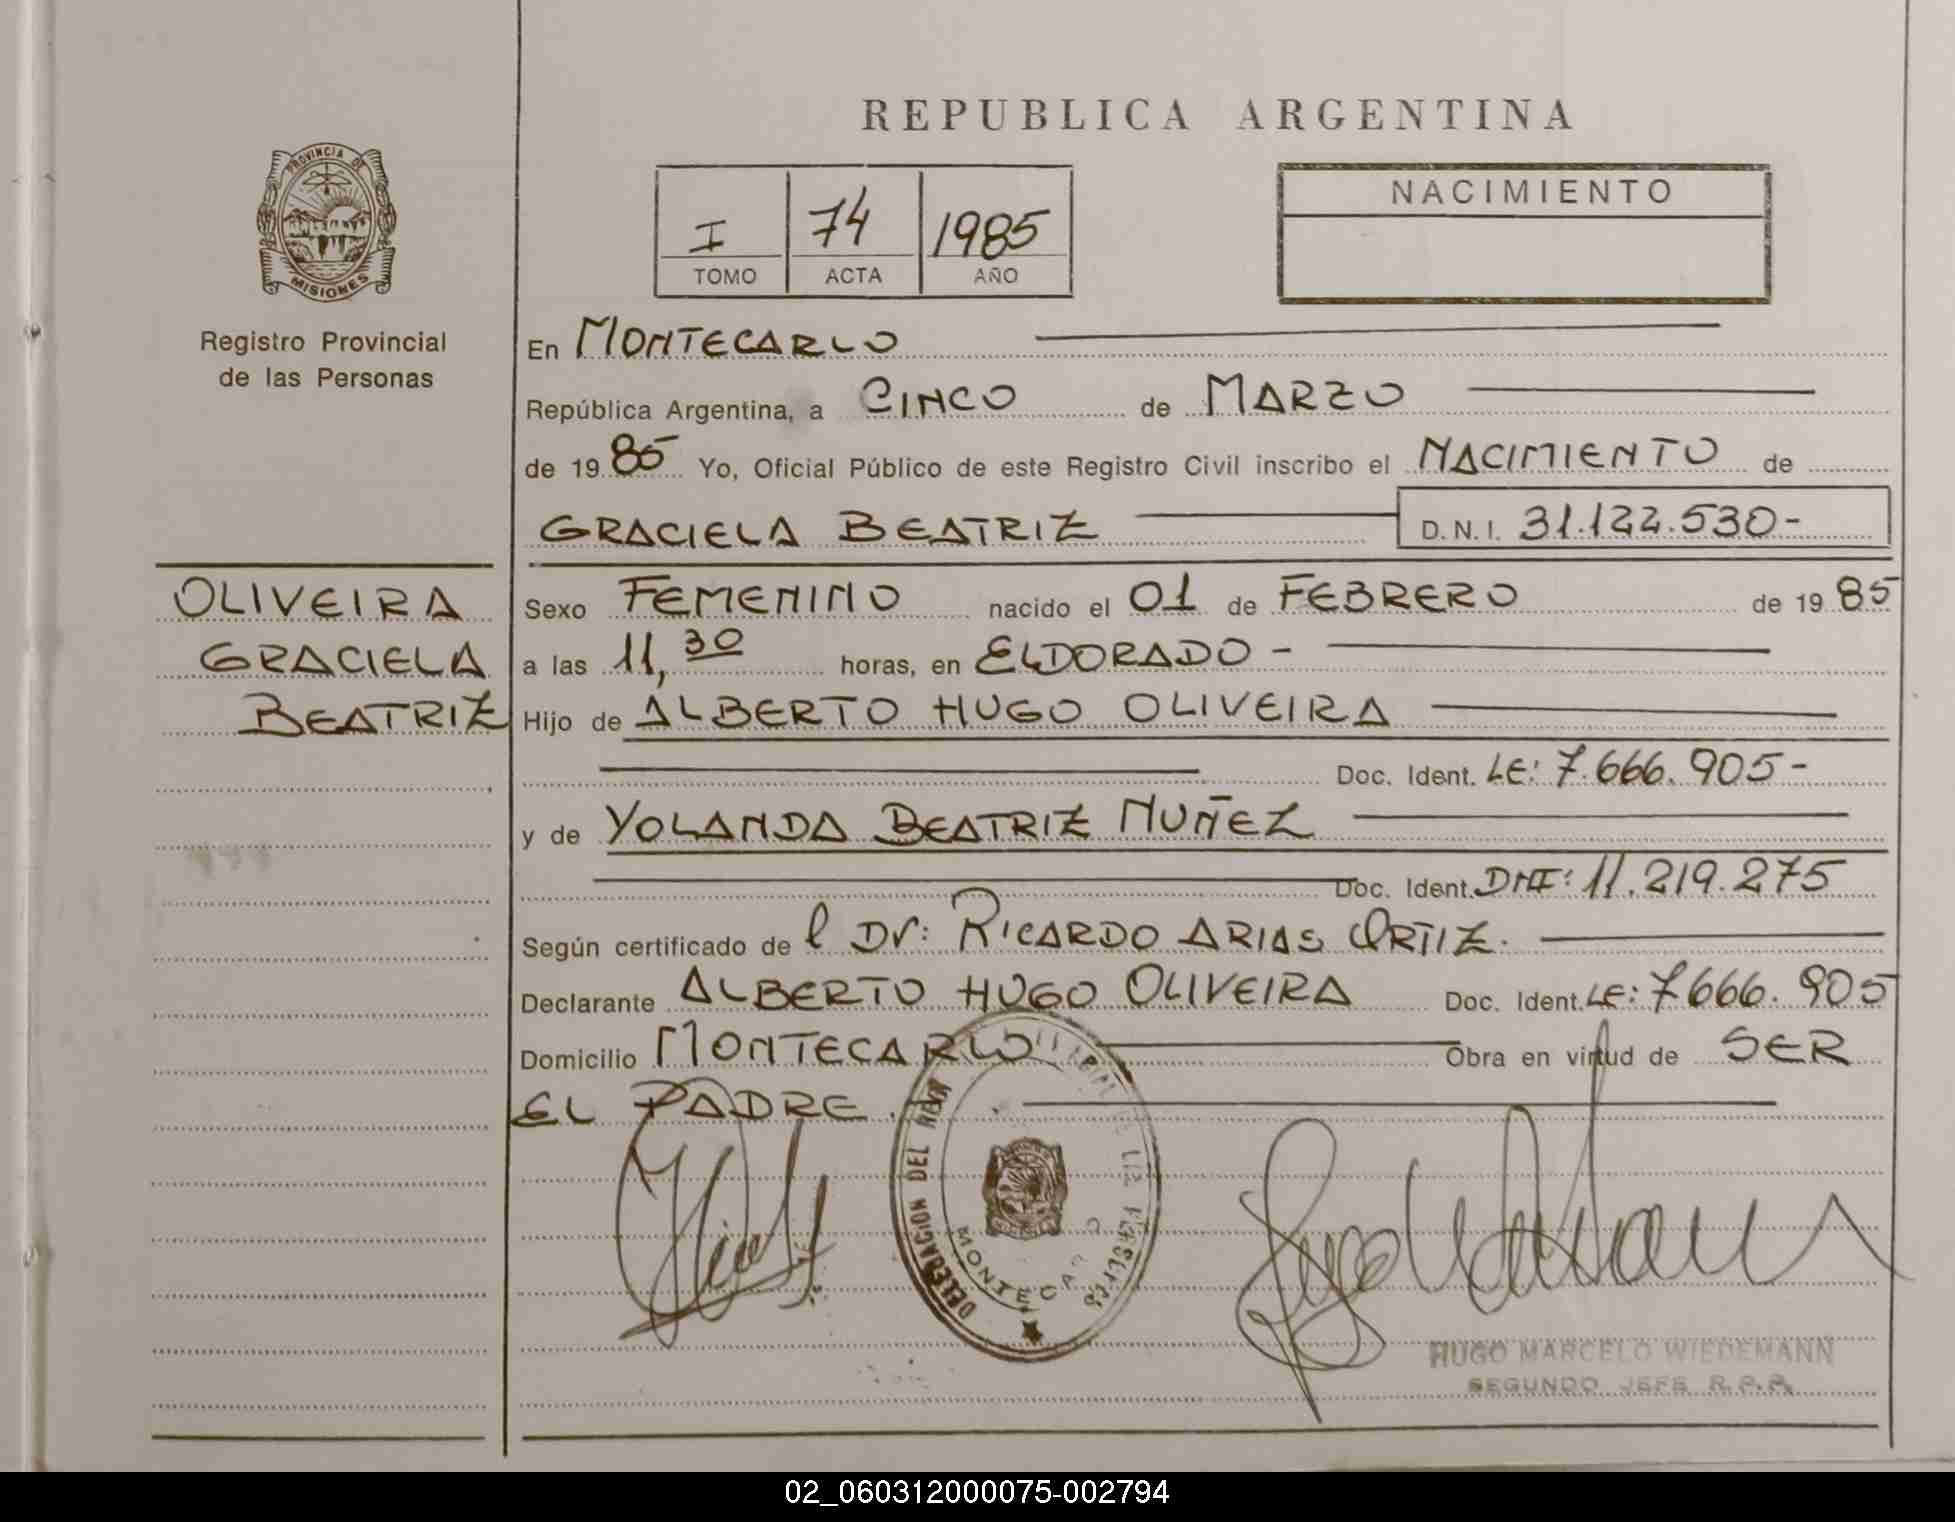 REPUBLICA ARGENTINA
PROVINCIA DE
MISIONES
Registro Provincial
de las Personas
I 74 1985
TOMO ACTA AÑO
NACIMIENTO
En MONTECARLO
República Argentina, a CINCO de MARZO
de 19 85 Yo, Oficial Público de este Registro Civil inscribo el NACIMIENTO de
GRACIELA BEATRIZ D.N.I. 31.122.530-
OLIVEIRA
GRACIELA
BEATRIZ
Sexo FEMENINO nacido el 01 de FEBRERO de 19 85
a las 11,30 horas, en ELDORADO -
Hijo de ALBERTO HUGO OLIVEIRA
Doc. Ident. LE: 7.666.905-
y de YOLANDA BEATRIZ NUÑEZ
Doc. Ident. DNI: 11.219.275
Según certificado de l Dr: RICARDO ARIAS ORTIZ.
Declarante ALBERTO HUGO OLIVEIRA Doc. Ident. LE: 7666.905
Domicilio MONTECARLO Obra en virtud de SER
EL PADRE.
DELEGACION DEL
MONTECARLO
HUGO MARCELO WIEDEMANN
SEGUNDO JEFE R.P.P.
02_060312000075-002794